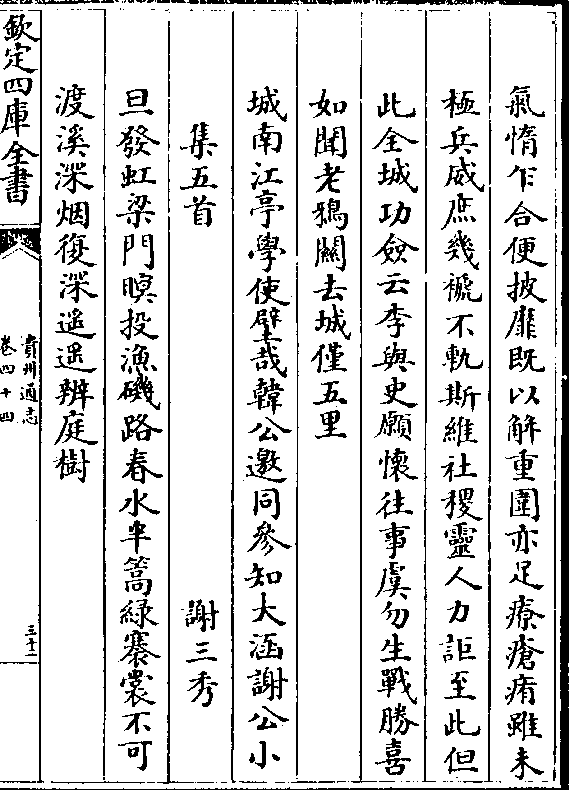 氣惰乍合便披靡既以解重圍亦足療瘡痏雖未
極兵威庶幾褫不軌斯維社稷靈人力詎至此但
此全城功僉云李與史願懷往事虞勿生戰勝喜
如聞老鴉關去城僅五里
城南江亭學使壁哉韓公邀同參知大涵謝公小
集五首
謝三秀
旦發虹梁門暝投漁磯路春水半篙綠褰裳不可
渡溪深烟復深遥遥辨庭樹
欽定四庫全書
貴州通志
卷四十四
三十二